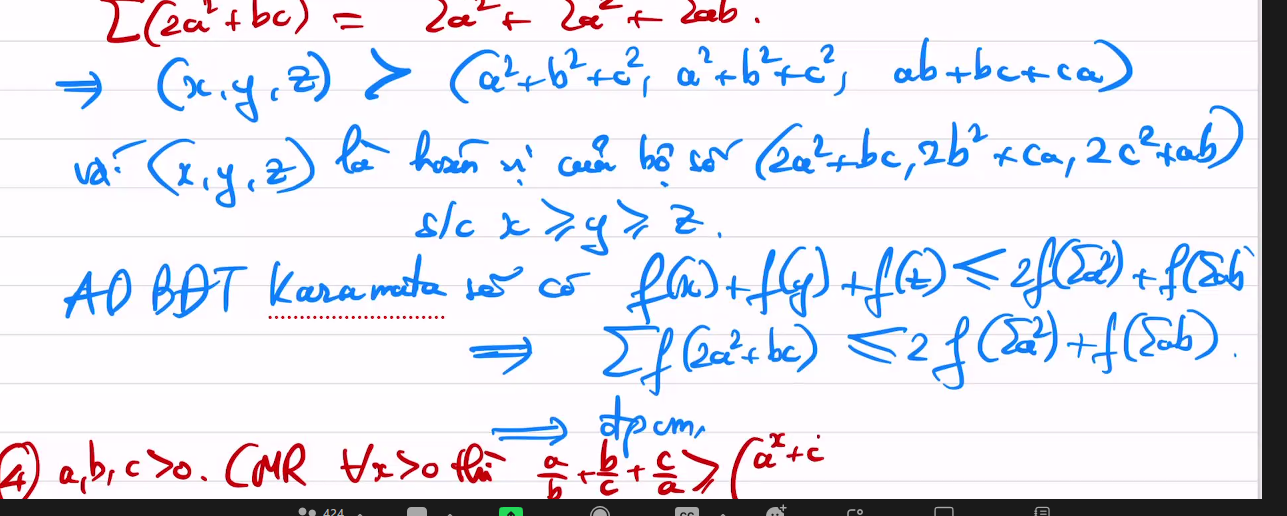 Σ(2a²+bc) = 2a²+ 2a²+ 2ab.
⇒ (x,y,z) > (a²+b²+c², a²+b²+c², ab+bc+ca)
và (x,y,z) là hoán vị của bộ số (2a²+bc, 2b²+ca, 2c²+ab)
s/c x ⩾ y ⩾ z.
AD BĐT Karamata sẽ có f(x)+f(y)+f(z) ⩽ 2f(Σa²)+f(Σab
⇒ Σf(2a²+bc) ⩽ 2f(Σa²)+f(Σab).
⇒ đpcm,
4) a,b,c>0. CMR ∀x>0 thì a/b + b/c + c/a ⩾ (aˣ+c
424
CC